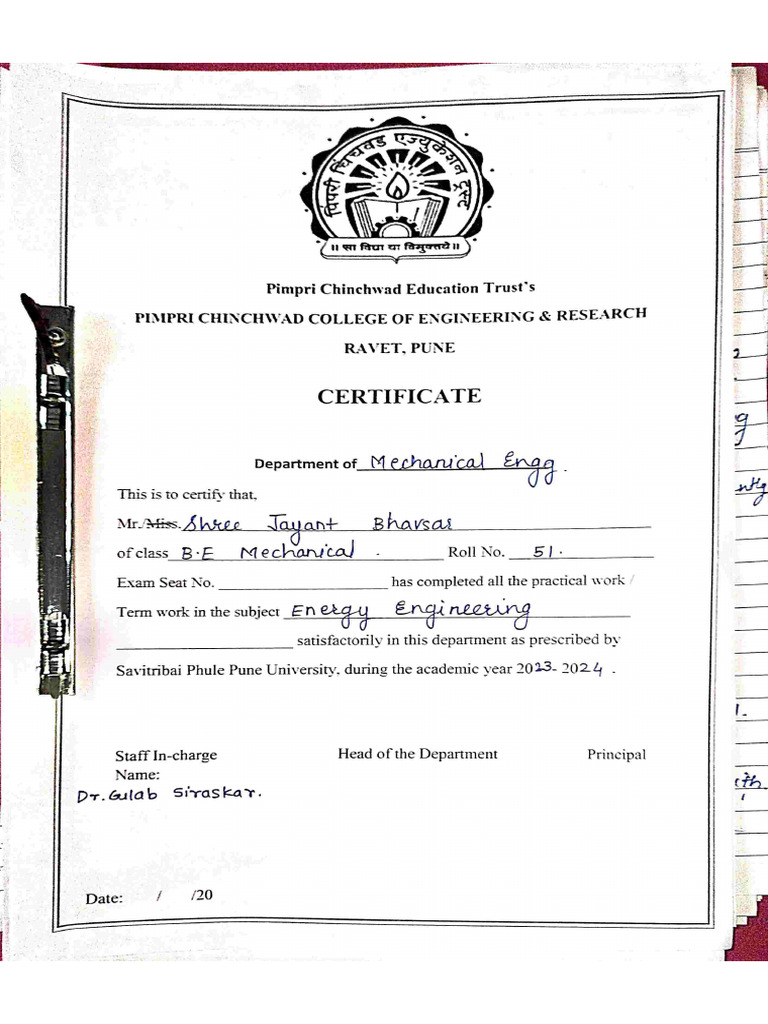 पिंपरी चिंचवड एज्युकेशन ट्रस्ट
॥ सा विद्या या विमुक्तये ॥
Pimpri Chinchwad Education Trust's
PIMPRI CHINCHWAD COLLEGE OF ENGINEERING & RESEARCH
RAVET, PUNE
CERTIFICATE
Department of Mechanical Engg.
This is to certify that,
Mr./Miss. Shree Jayant Bhavsar
of class B.E Mechanical. Roll No. 51.
Exam Seat No. has completed all the practical work /
Term work in the subject Energy Engineering
satisfactorily in this department as prescribed by
Savitribai Phule Pune University, during the academic year 2023-2024.
Staff In-charge Head of the Department Principal
Name:
Dr. Gulab Siraskar.
Date: / /20